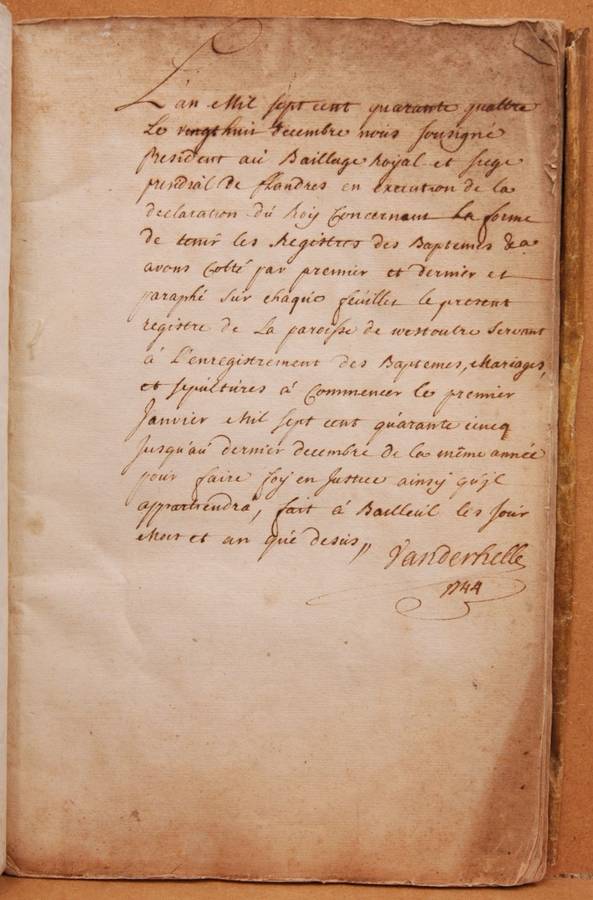 L'an Mil sept cent quarante quattre
Le vingthuit decembre nous sousigné
President au Bailliage Royal et siege
presidial de flandres en execution de la
declaration du Roy Concernant la forme
de tenir les Registres des Baptemes &a
avons Cotté par premier et dernier et
paraphé sur chaque feuillet le present
registre de La paroisse de westoutre servant
à L'enregistrement des Baptemes, Mariages,
et sepultures à Commencer le premier
Janvier Mil sept cent quarante cincq
Jusqu'au dernier decembre de la même année
pour faire foy en Justice ainsy qu'jl
appartiendra, fait à Bailleul les Jour
Mois et an que desus,,
Vanderhelle
1744